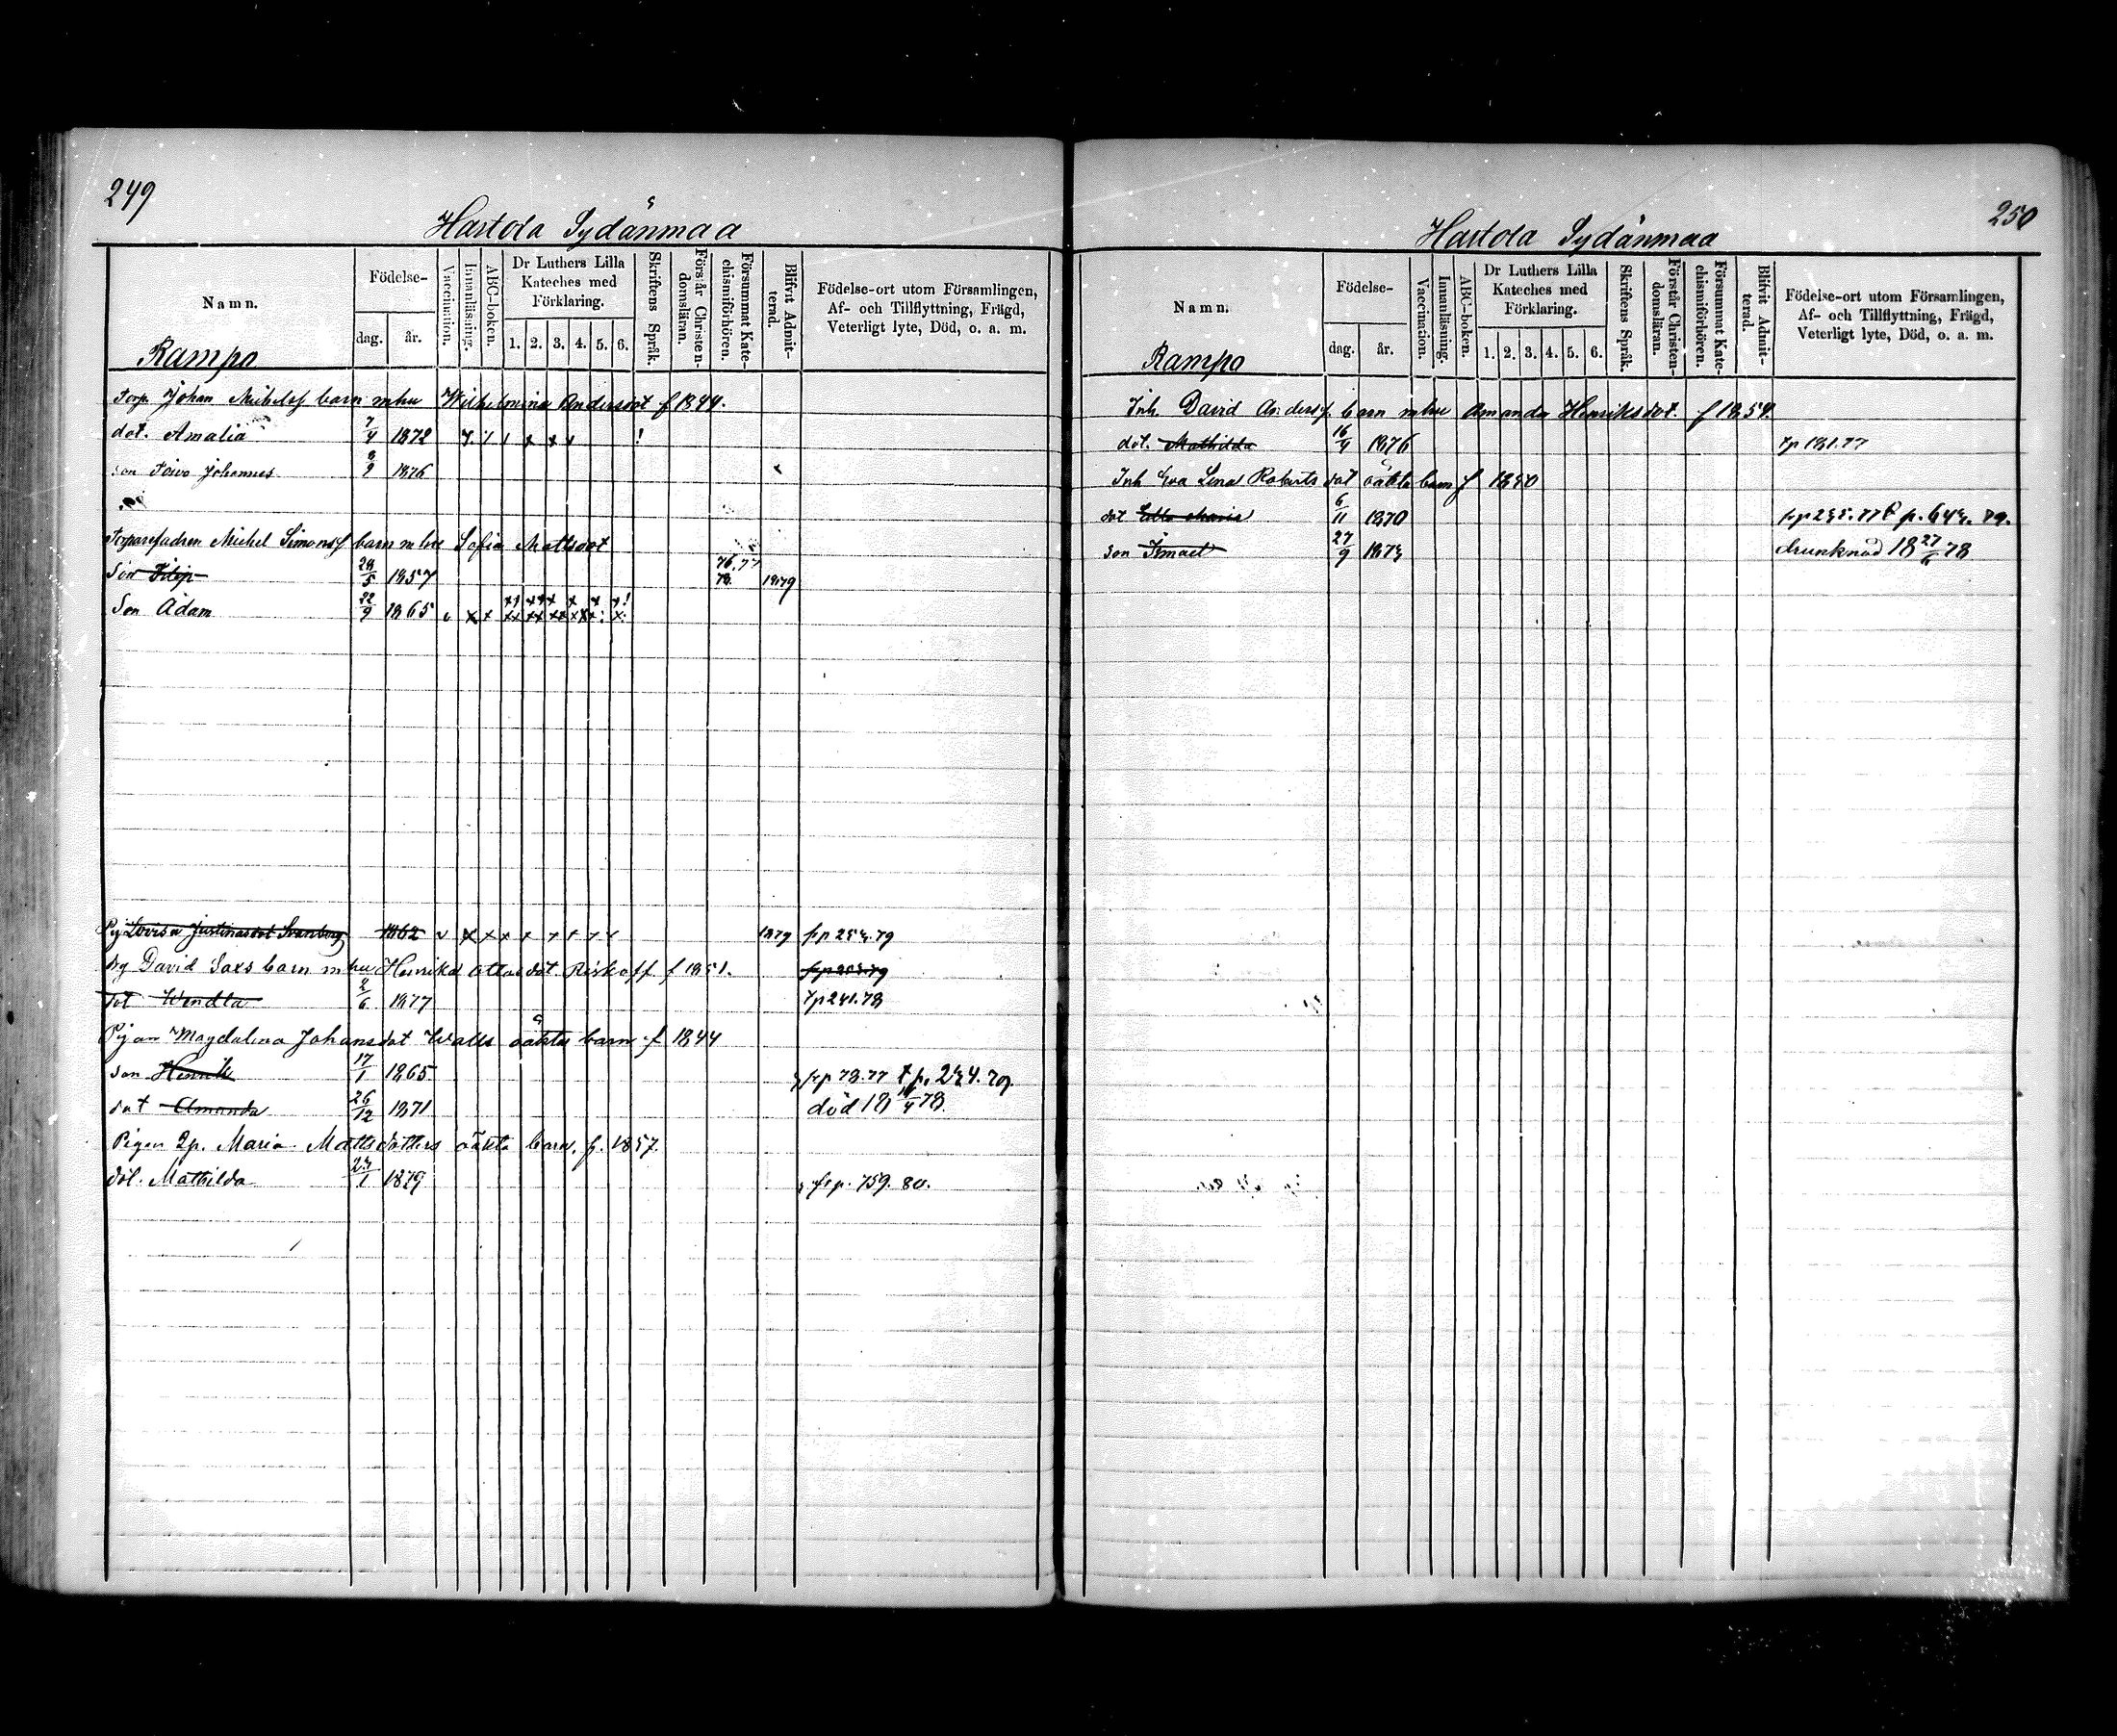 249
Hartola Sydänmaa
Namn.
Födelse-
dag.
år.
Vaccination.
Innanläsning.
ABC-boken.
Dr Luthers Lilla
Kateches med
Förklaring.
1. 2. 3. 4. 5. 6.
Skriftens Språk.
Förstår Christen-
domsläran.
Försummat Kate-
chismiförhören.
Blifvit Admit-
terad.
Födelse-ort utom Församlingen,
Af- och Tillflyttning, Frägd,
Veterligt lyte, Död, o. a. m.
Rampo
Torp. Johan Michelsf barn m hu Wilhelmina Andersdot f 1844.
dot. Amalia 7/4 1872
son Toivo Johannes 8/9 1876
Torparefadren Michel Simonsf barn m hu Sofia Mattsdot
Son Filip 28/5 1857 76.77 78. 1879
Son Adam 22/9 1865
Pig Lovisa Justinasdot Svanberg 1862 1879 79
Dg David Saxs barn m hu Henrika Ottosdot f 1851.
dot Wendla 2/6 1877 Tp 241.78
Pigan Magdalena Johansdot Walls oäkta barn f 1844
son Henrik 17/1 1865 fr p 78.77
dot Amanda 26/12 1871 död 18 78.
Pigan Maria Mattsdotters oäkta barn, f. 1857.
dot. Mathilda 1879 fr p. 759. 80.
250
Hartola Sydänmaa
Namn.
Födelse-
dag.
år.
Vaccination.
Innanläsning.
ABC-boken.
Dr Luthers Lilla
Kateches med
Förklaring.
1. 2. 3. 4. 5. 6.
Skriftens Språk.
Förstår Christen-
domsläran.
Försummat Kate-
chismiförhören.
Blifvit Admit-
terad.
Födelse-ort utom Församlingen,
Af- och Tillflyttning, Frägd,
Veterligt lyte, Död, o. a. m.
Rampo
Inh. David Andersf. barn m hu Amanda Henriksdot. f 1854.
dot. Mathilda 16/4 1876 Tp 181.77
Inh Eva Lena Roberts dot oäkta barn f 1850
dot Maria 6/11 1870
son Ismael 27/9 1875 drunknad 18 27/6 78